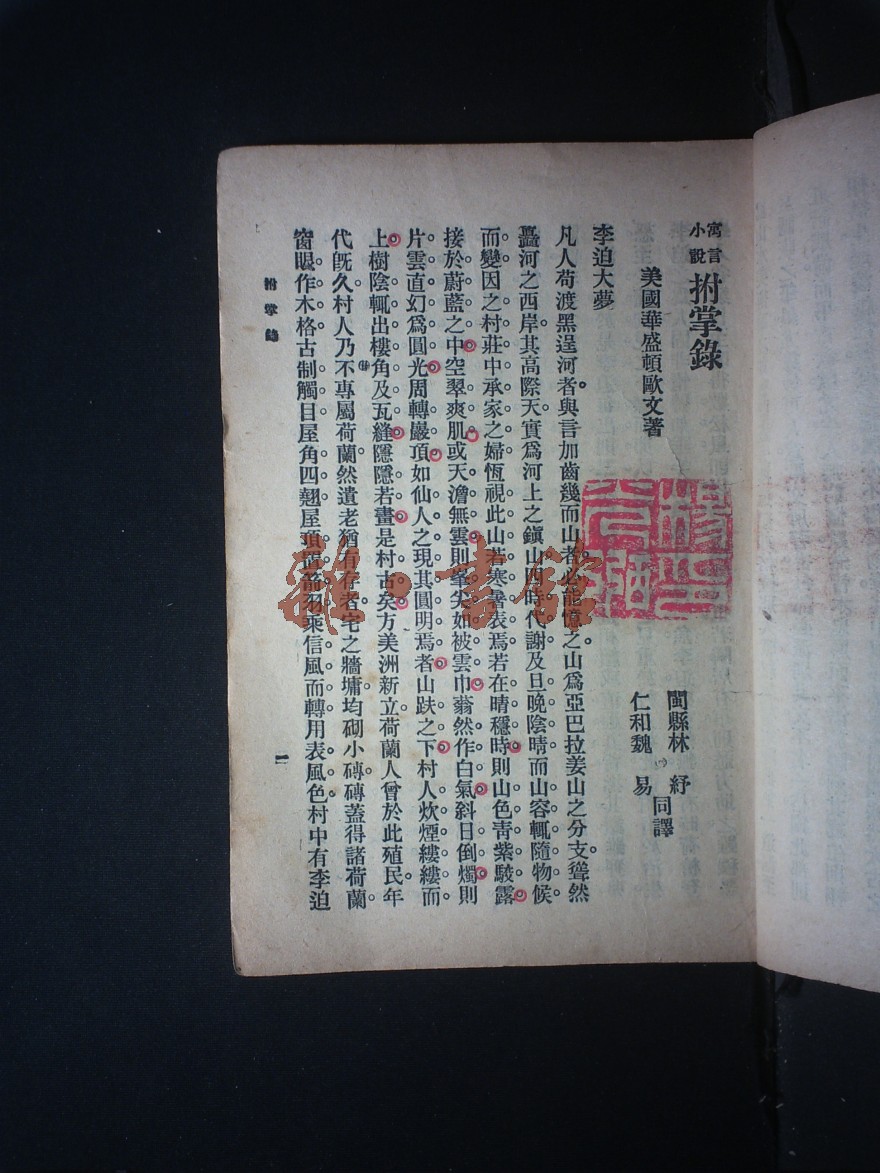 寓言
小說
拊掌錄
美國華盛頓歐文著
閩縣林　紓
仁和魏　易
同譯
李迫大夢
凡人苟渡黑逞河者。與言加齒幾而山者。必能憶之。山爲亞巴拉姜山之分支。聳然
矗河之西岸。其高際天。實爲河上之鎭山。四時代謝。及旦晚陰晴。而山容輒隨物候
而變。因之村莊中承家之婦。恆視此山若寒暑表焉。若在晴穩時。則山色靑紫駿露。
接於蔚藍之中。空翠爽肌。或天澹無雲。則峯尖如被雲巾。蓊然作白氣。斜日倒燭。則
片雲直幻爲圓光。周轉巖頂。如仙人之現其圓明焉者。山趺之下。村人炊煙縷縷而
上。樹陰輒出樓角及瓦縫。隱隱若畫。是村古矣。方美洲新立。荷蘭人曾於此殖民。年
代旣久。村人乃不專屬荷蘭。然遺老猶有存者。宅之牆墉。均砌小磚。磚蓋得諸荷蘭。
窗眼作木格。古制觸目。屋角四翹。屋頂置箭羽。乘信風而轉。用表風色。村中有李迫
拊掌錄
一
雜·書館